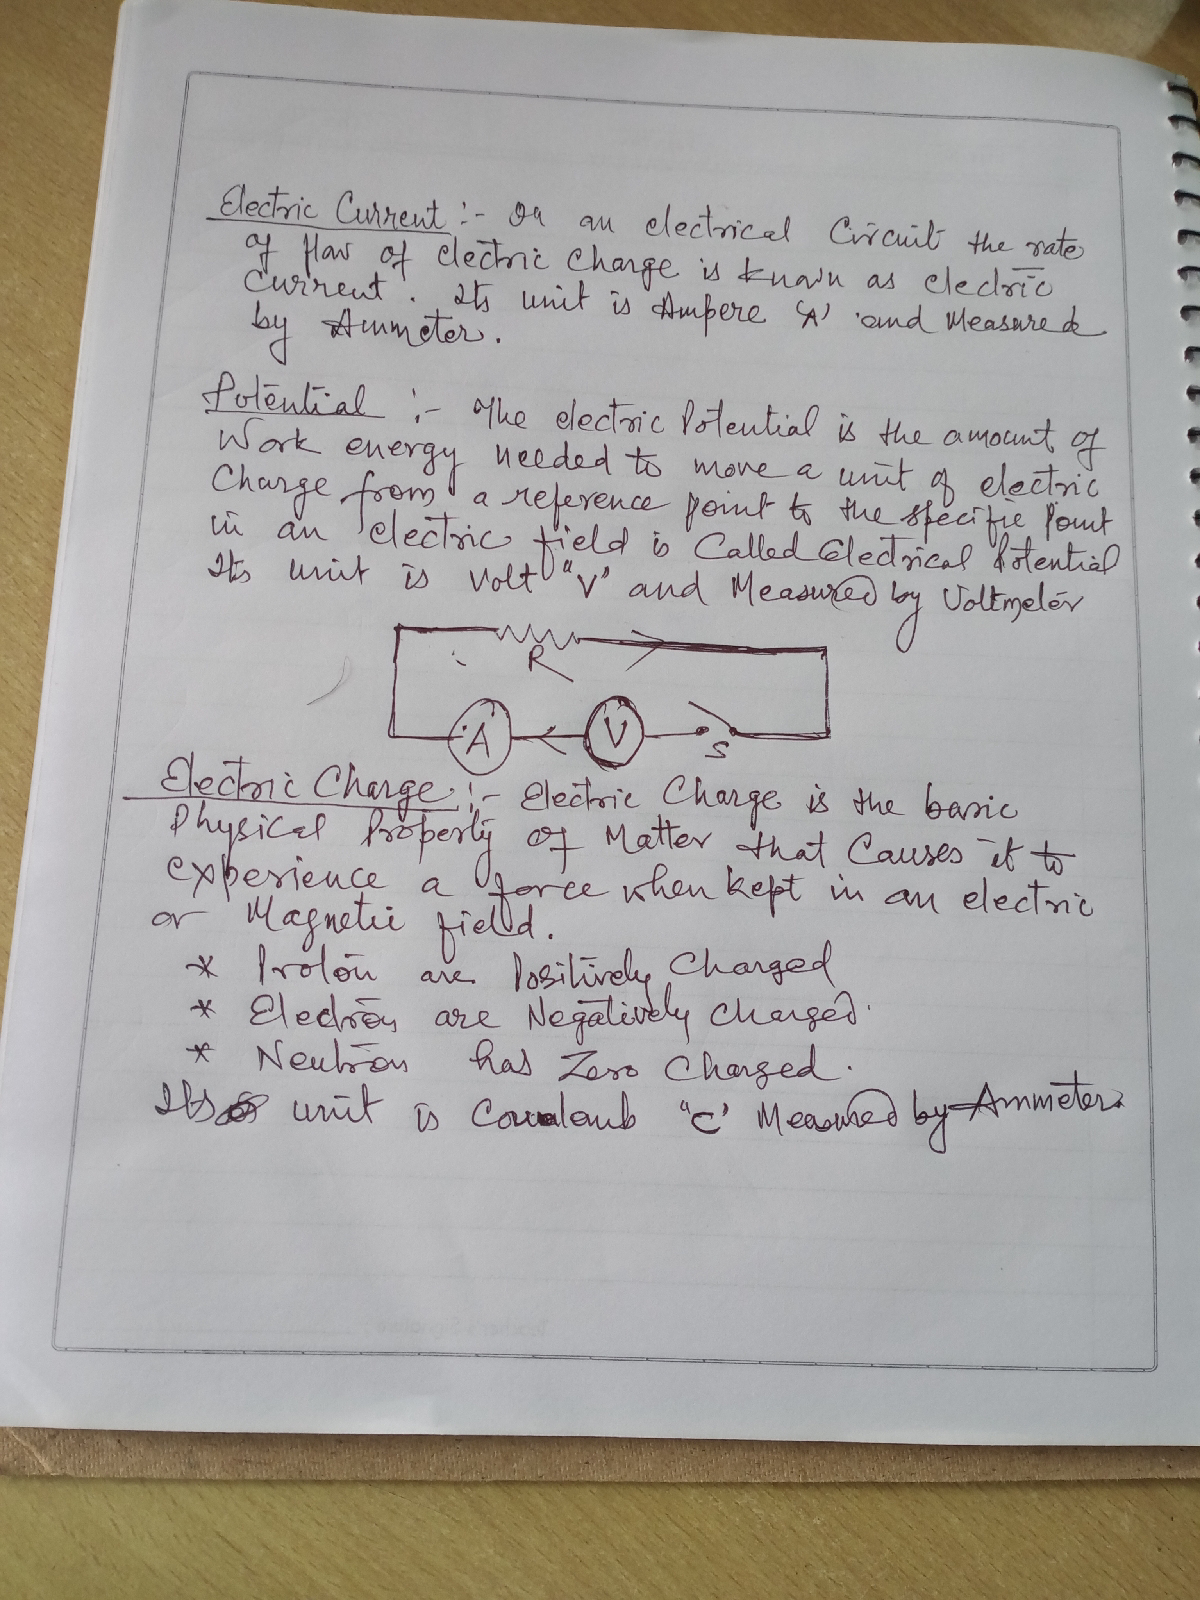 Electric Current :- In an electrical Circuit the rate
of flow of electric Charge is known as electric
Current. Its unit is Ampere 'A' and Measured
by Ammeter.
Potential :- The electric Potential is the amount of
Work energy needed to move a unit of electric
Charge from a reference point to the specific Point
in an electric field is Called Electrical Potential
Its unit is Volt "V" and Measured by Voltmeter
R
A V S
Electric Charge :- Electric Charge is the basic
Physical Property of Matter that Causes it to
experience a force when kept in an electric
or Magnetic field.
* Proton are Positively Charged
* Electron are Negatively Charged.
* Neutron has Zero Charged.
Its unit is Coualomb "C" Measured by Ammeter.